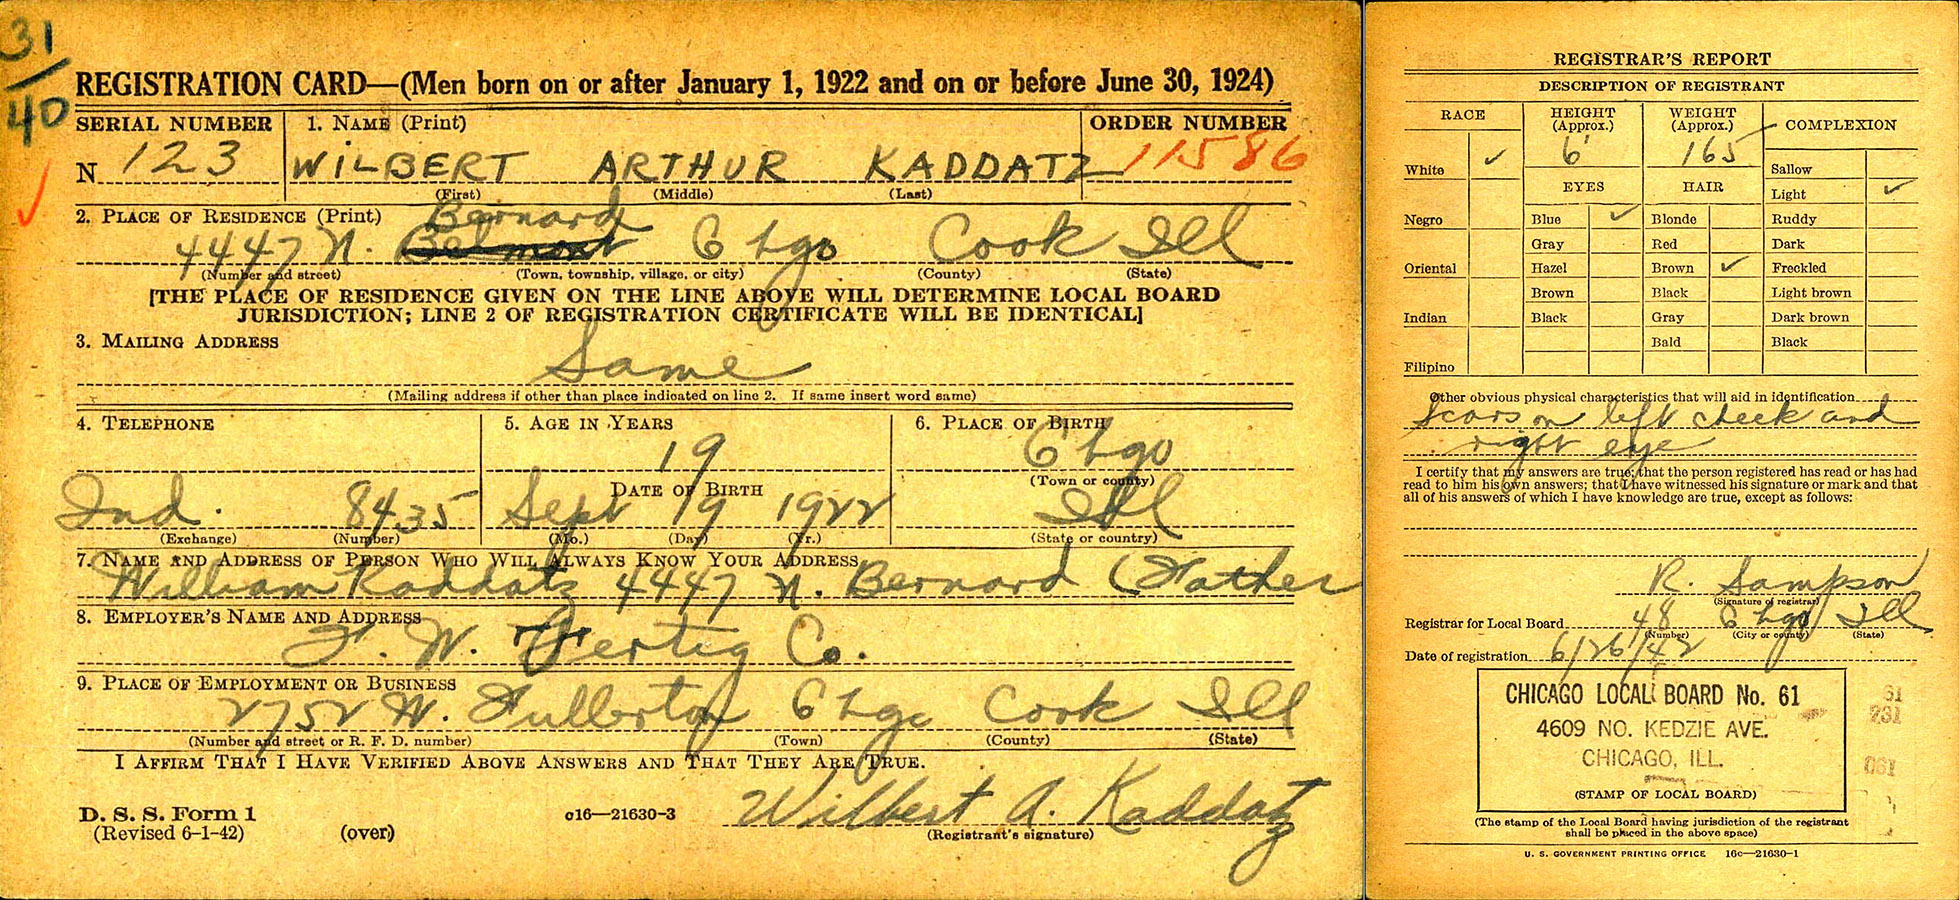 31
40
REGISTRATION CARD—(Men born on or after January 1, 1922 and on or before June 30, 1924)
SERIAL NUMBER 1. NAME (Print) ORDER NUMBER
N 123 WILBERT ARTHUR KADDATZ 11586
(First) (Middle) (Last)
2. PLACE OF RESIDENCE (Print) Bernard
4447 N. Belmont Chgo Cook Ill
(Number and street) (Town, township, village, or city) (County) (State)
[THE PLACE OF RESIDENCE GIVEN ON THE LINE ABOVE WILL DETERMINE LOCAL BOARD
JURISDICTION; LINE 2 OF REGISTRATION CERTIFICATE WILL BE IDENTICAL]
3. MAILING ADDRESS
Same
(Mailing address if other than place indicated on line 2. If same insert word same)
4. TELEPHONE 5. AGE IN YEARS 6. PLACE OF BIRTH
19 Chgo
(Town or county)
DATE OF BIRTH
Ind. 8435 Sept 19 1922 Ill
(Exchange) (Number) (Mo.) (Day) (Yr.) (State or country)
7. NAME AND ADDRESS OF PERSON WHO WILL ALWAYS KNOW YOUR ADDRESS
William Kaddatz 4447 N. Bernard (Father
8. EMPLOYER'S NAME AND ADDRESS
F. W. Fertig Co.
9. PLACE OF EMPLOYMENT OR BUSINESS
2752 W. Fullerton Chgo Cook Ill
(Number and street or R. F. D. number) (Town) (County) (State)
I AFFIRM THAT I HAVE VERIFIED ABOVE ANSWERS AND THAT THEY ARE TRUE.
D. S. S. Form 1
(Revised 6-1-42) (over) c16—21630-3
Wilbert A. Kaddatz
(Registrant's signature)
REGISTRAR'S REPORT
DESCRIPTION OF REGISTRANT
RACE HEIGHT (Approx.) WEIGHT (Approx.) COMPLEXION
White ✓ 6' 165 Sallow
EYES HAIR Light ✓
Negro Blue ✓ Blonde Ruddy
Gray Red Dark
Oriental Hazel Brown ✓ Freckled
Brown Black Light brown
Indian Black Gray Dark brown
Bald Black
Filipino
Other obvious physical characteristics that will aid in identification
Scars on left cheek and
right eye
I certify that my answers are true; that the person registered has read or has had
read to him his own answers; that I have witnessed his signature or mark and that
all of his answers of which I have knowledge are true, except as follows:
R. Sampson
(Signature of registrar)
Registrar for Local Board 48 Chgo Ill
(Number) (City or county) (State)
Date of registration 6/26/42
CHICAGO LOCAL BOARD No. 61
4609 NO. KEDZIE AVE.
CHICAGO, ILL.
(STAMP OF LOCAL BOARD)
61
231
(The stamp of the Local Board having jurisdiction of the registrant
shall be placed in the above space)
U. S. GOVERNMENT PRINTING OFFICE 16c—21630-1